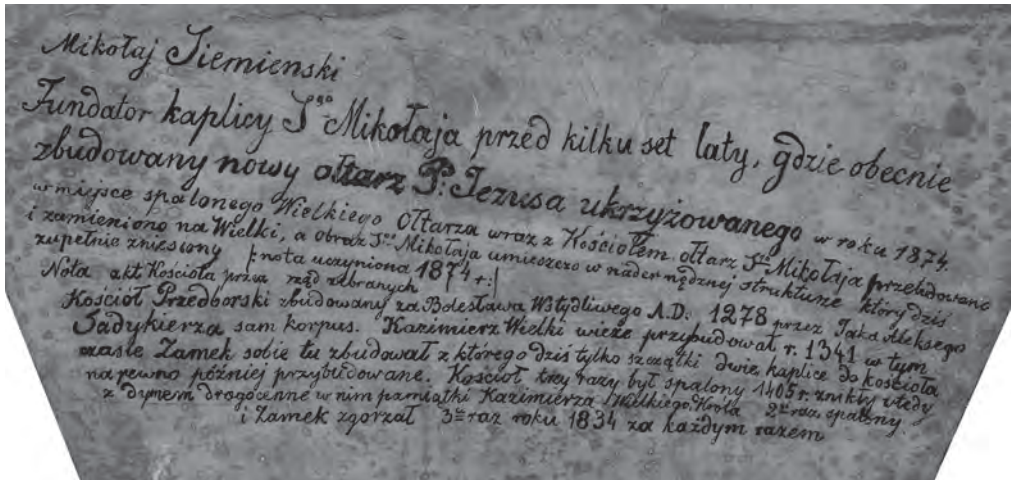 Mikołaj Siemienski
Fundator kaplicy Sgo Mikołaja przed kilku set laty, gdzie obecnie
zbudowany nowy ołtarz P: Jezusa ukrzyżowanego w roku 1874.
w miejsce spalonego Wielkiego Ołtarza wraz z Kościołem ołtarz Sgo Mikołaja przebudowano
i zamieniono na Wielki, a obraz Sgo Mikołaja umieszczo w nader nędznej strukturze który dziś
zupełnie zniesiony |: nota uczyniona 1874 r :|
Nota akt Kościoła przez rząd zebranych
Kościół Przedborski zbudowany za Bolesława Wstydliwego A.D. 1278 przez Jaka Aleksego
Sadykierza sam korpus. Kazimierz Wielki wieże przybudował r. 1341 w tym
czasie Zamek sobie tu zbudował z którego dziś tylko szczątki dwie kaplice do kościoła
na pewno później przybudowane. Kościół trzy razy był spalony 1405 r. znikły wtedy
z dymem drogocenne w nim pamiątki Kazimierza Wielkiego Króla 2gi raz spalony
i Zamek zgorzał 3ci raz roku 1834 za każdym razem